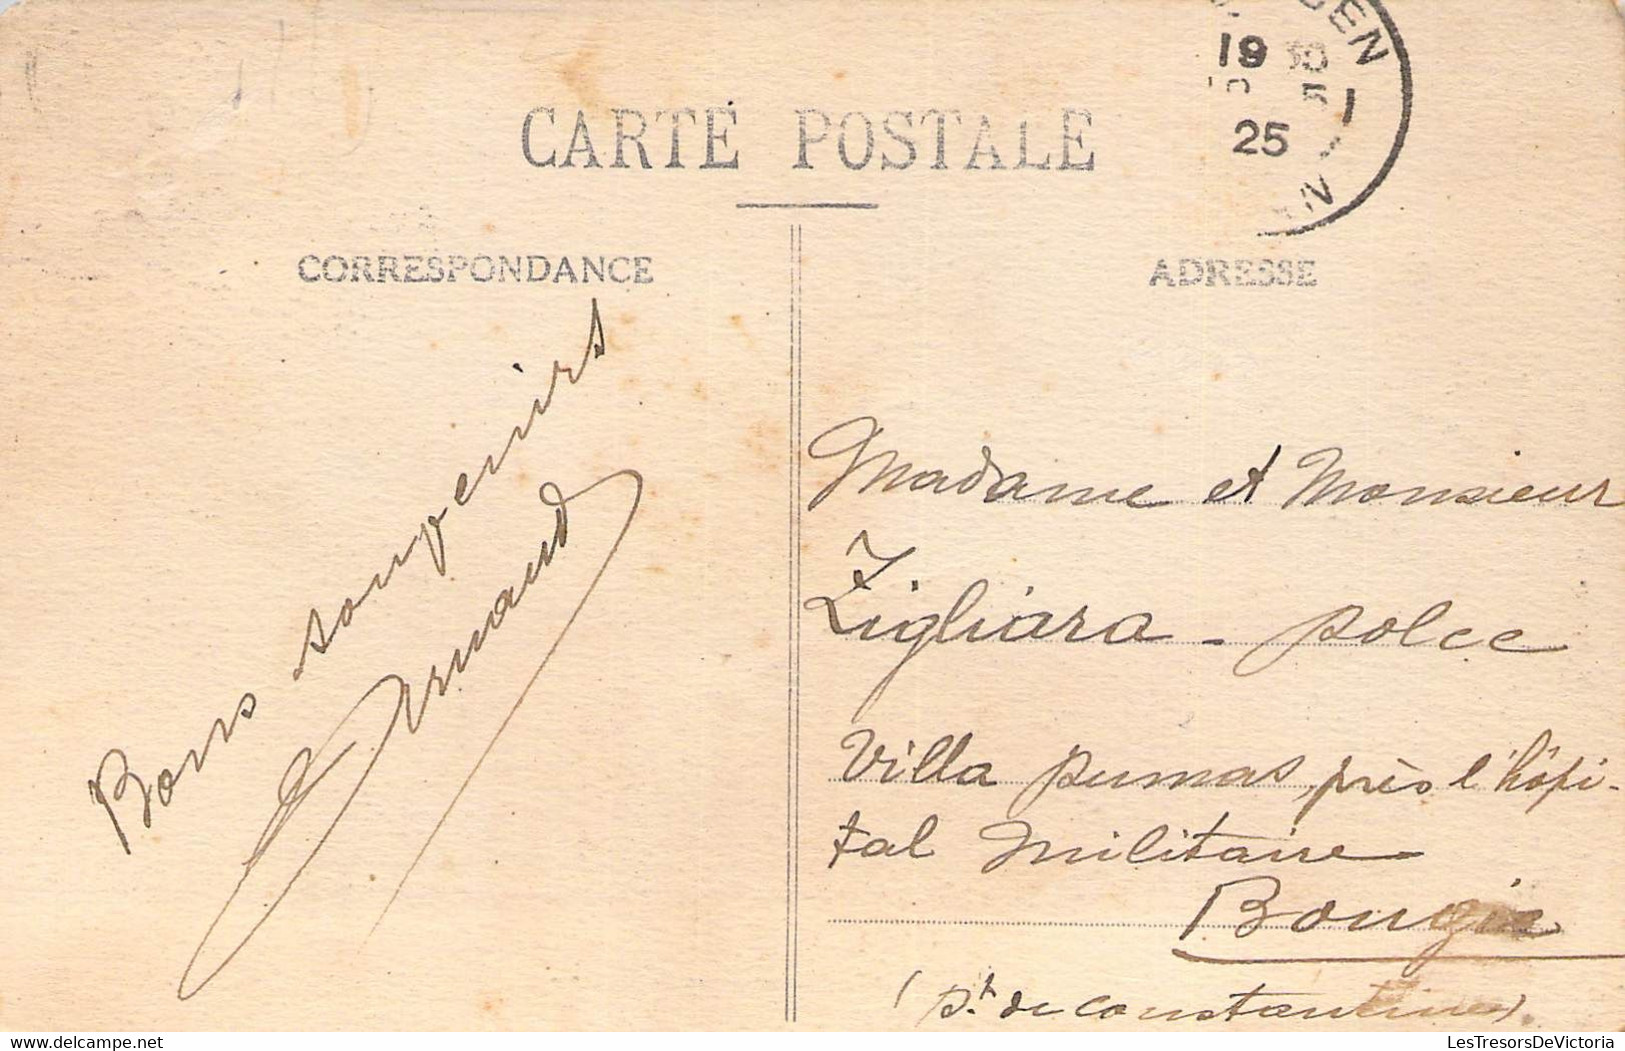 CARTE POSTALE
CORRESPONDANCE
ADRESSE
19
25
Bons souvenirs
Arnaud
Madame et Monsieur
Zigliara - Dolce
Villa Dumas, près l'hôpi-
tal Militaire
Bougie
(Dt de Constantine).
LesTresorsDeVictoria